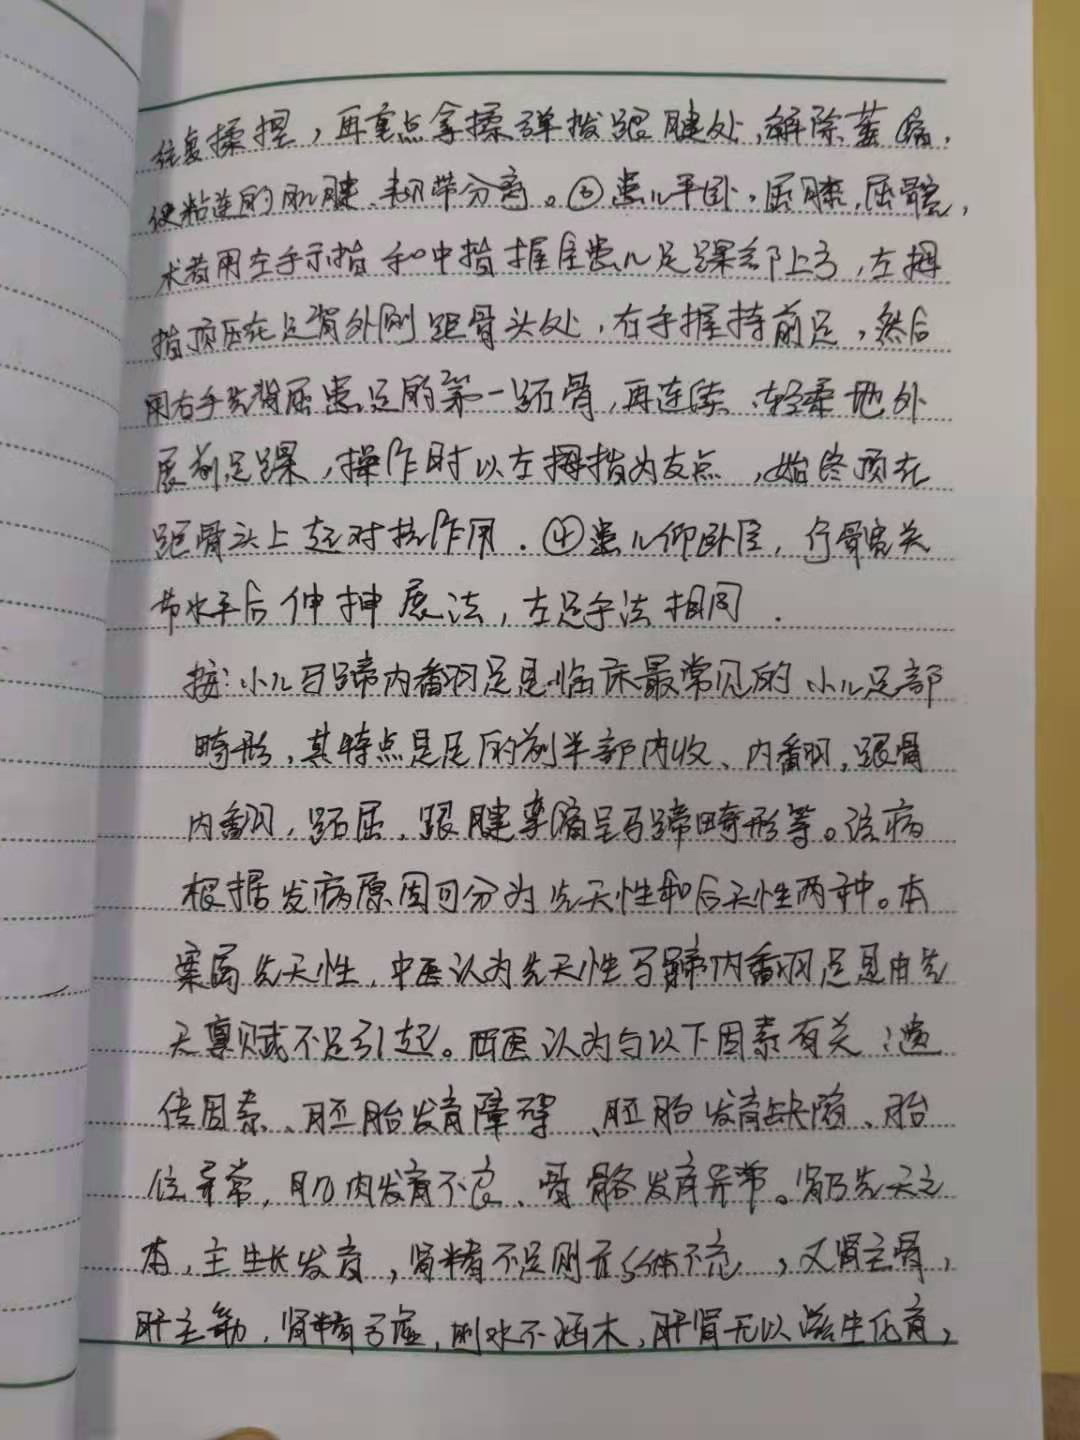 往复揉捏，再重点拿揉弹拨跟腱处，解除萎缩，
使粘连的肌腱、韧带分离。③患儿平卧，屈膝，屈髋，
术者用左手示指和中指握住患儿足踝部上方，左拇
指顶压在足背外侧距骨头处，右手握持前足，然后
用右手先背屈患足的第一跖骨，再连续、轻柔地外
展前足踝，操作时以左拇指为支点，始终顶在
距骨头上起对抗作用。④患儿仰卧位，行髋关
节水平后伸抻展法，左足手法相同。
按：小儿马蹄内翻足是临床最常见的小儿足部
畸形，其特点是足的前半部内收、内翻，跟骨
内翻，跖屈，跟腱挛缩呈马蹄畸形等。该病
根据发病原因可分为先天性和后天性两种。本
案属先天性，中医认为先天性马蹄内翻足是由先
天禀赋不足引起。西医认为与以下因素有关：遗
传因素、胚胎发育障碍、胚胎发育缺陷、胎
位异常，肌肉发育不良、骨骼发育异常。肾乃先天之
本，主生长发育，肾精不足则五体不充，又肾主骨，
肝主筋，肾精亏虚，则水不涵木，肝肾无以滋生化育，